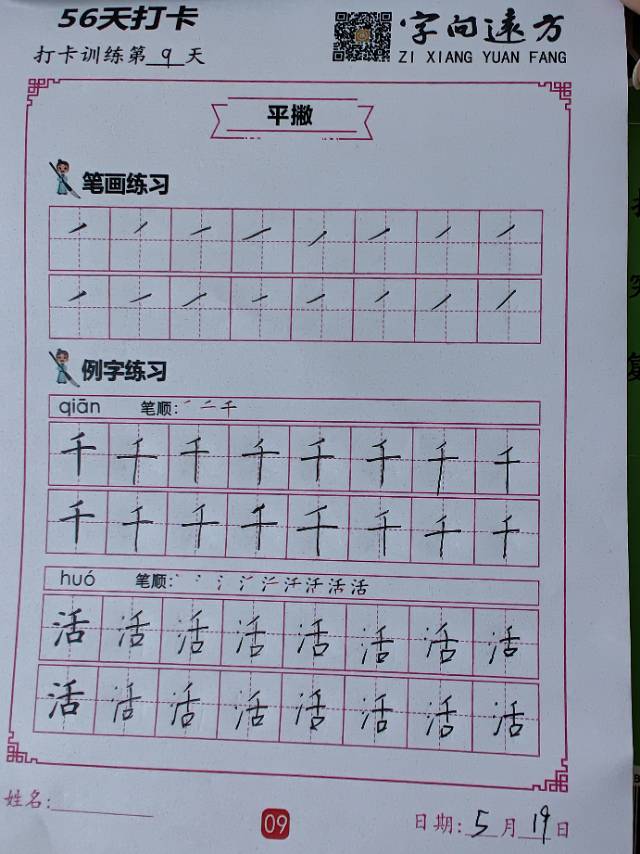 56天打卡
打卡训练第 9 天
字向远方
ZI XIANG YUAN FANG
平撇
笔画练习
例字练习
qiān 笔顺: ㇒ 二 千
千 千 千 千 千 千 千 千
千 千 千 千 千 千 千 千
huó 笔顺:
活 活 活 活 活 活 活 活
活 活 活 活 活 活 活 活
姓名:
09
日期: 5 月 19 日